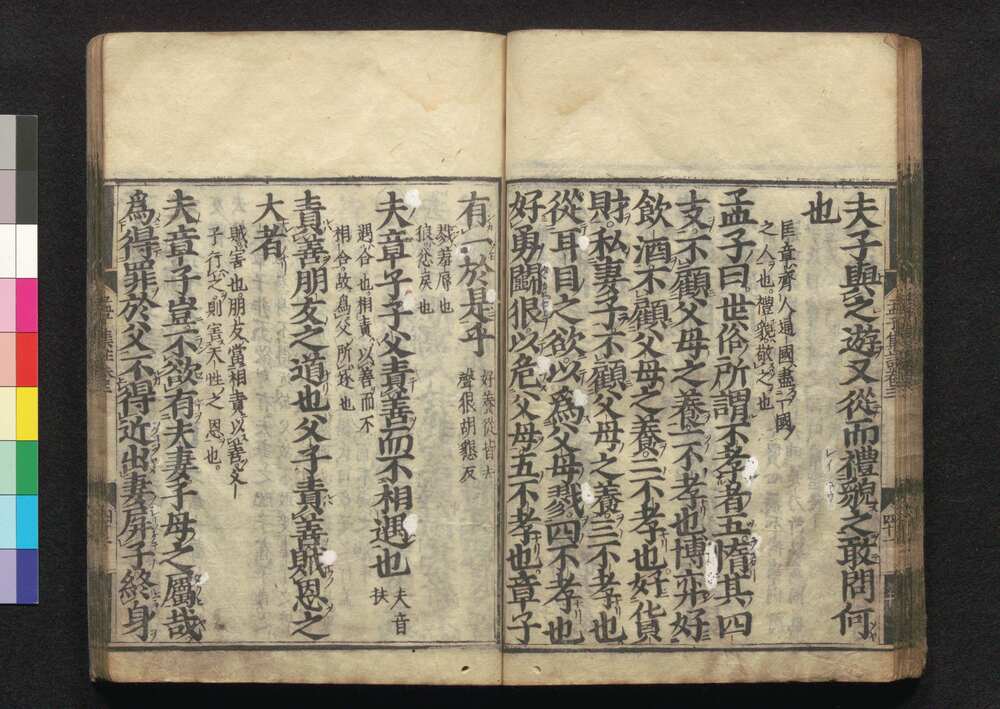 夫子與之遊又從而禮貌之敢問何
也
匡章齊人通國盡一國
之人也禮貌敬之也
孟子曰世俗所謂不孝者五惰其四
支不顧父母之養一不孝也博弈好
飲酒不顧父母之養二不孝也好貨
財私妻子不顧父母之養三不孝也
從耳目之欲以爲父母戮四不孝也
好勇鬭狠以危父母五不孝也章子
有一於是乎
好養從皆去
聲狠胡懇反
戮羞辱也
狠忿戾也
夫章子子父責善而不相遇也
夫音
扶
遇合也相責以善而不
相合故爲父所逐也
責善朋友之道也父子責善賊恩之
大者
賊害也朋友當相責以善父
子行之則害天性之恩也
夫章子豈不欲有夫妻子母之屬哉
爲得罪於父不得近出妻屏子終身